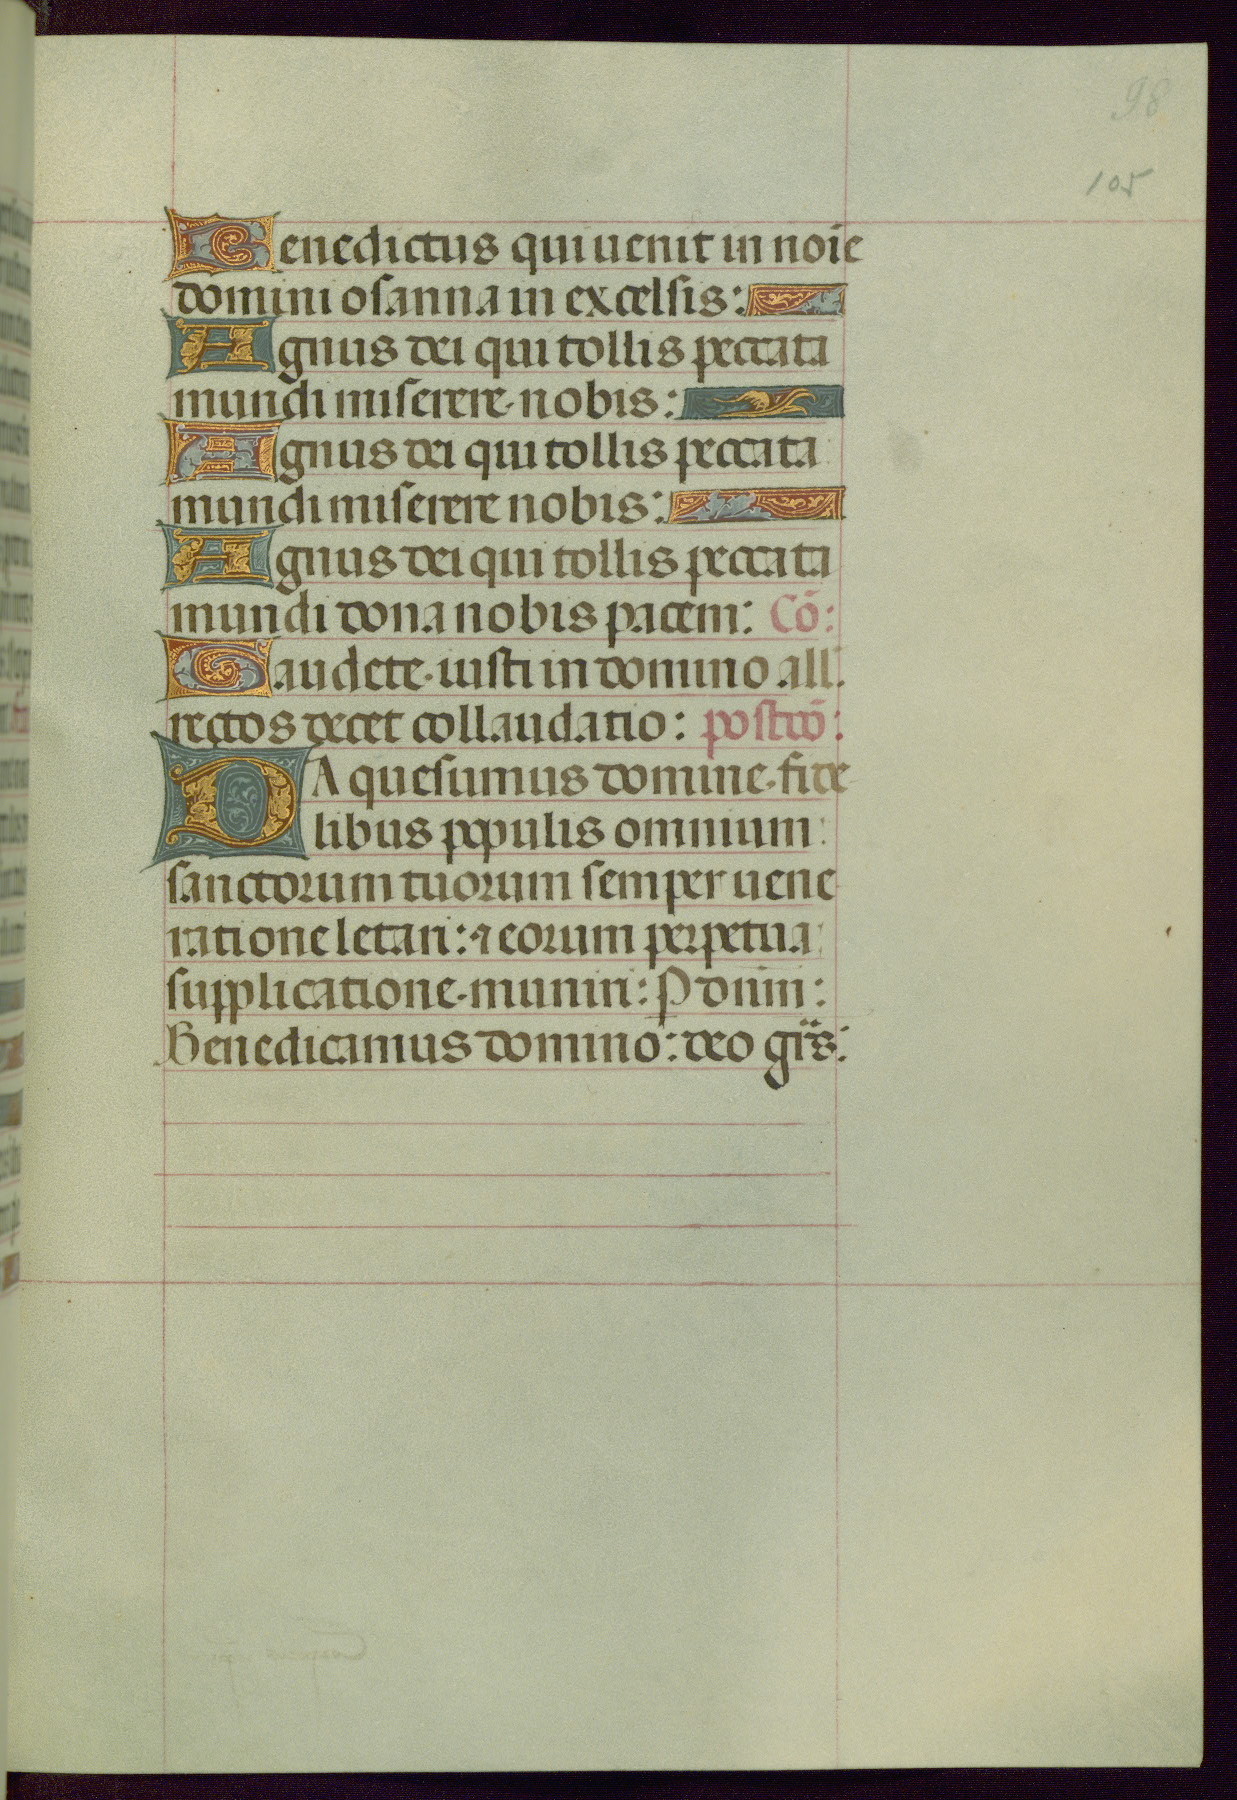 98
105
Benedictus qui uenit in noīe
domini osanna in excelsis:
Agnus dei qui tollis peccata
mundi miserere nobis:
Agnus dei qui tollis peccata
mundi miserere nobis:
Agnus dei qui tollis peccata
mundi dona nobis pacem: Cō:
Gaudete iusti in domino all:
rectos decet collaudatio: postcō:
DA quesumus domine fide
libus populis omnium
sanctorum tuorum semper uene
ratione letari: ⁊ eorum perpetua
supplicatione muniri: P dnm̄:
Benedicamus domino: deo gr̄s: